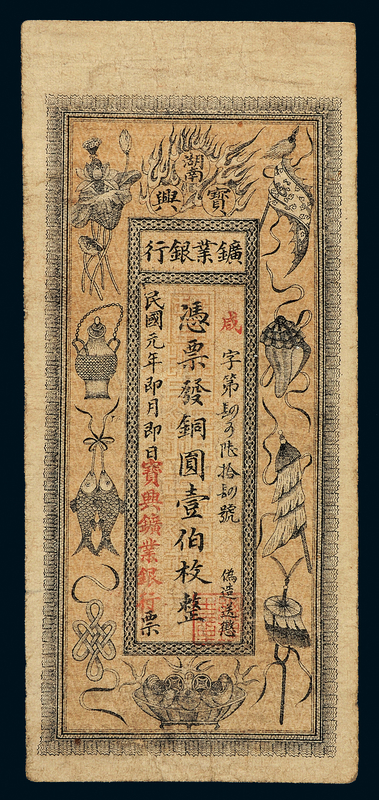 湖南
寶興
鑛業銀行
咸字第
拾
號
偽造送懲
憑票發銅圓壹伯枚整
民國元年即月即日寶興鑛業銀行票